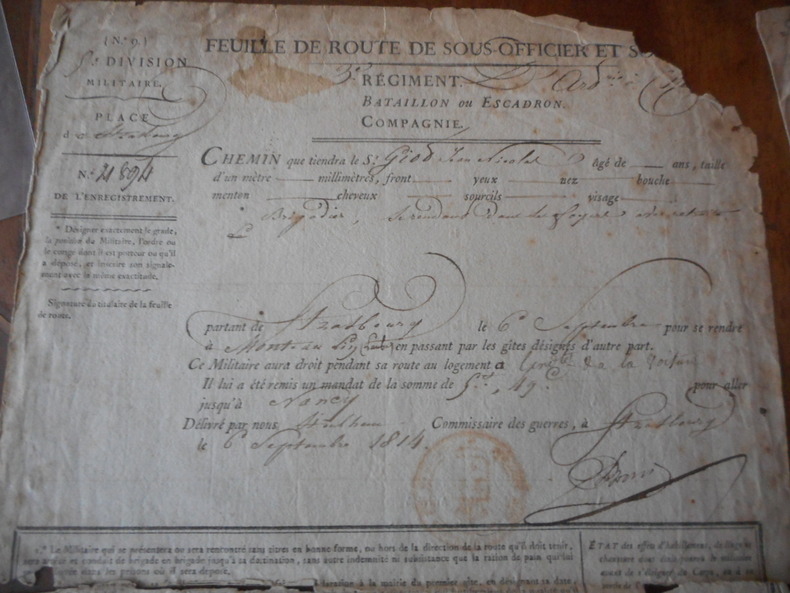 (N° 9.)
5e DIVISION
MILITAIRE.
PLACE
de Strasbourg
N.° 21894
DE L'ENREGISTREMENT.
* Désigner exactement le grade,
la position du Militaire, l'ordre ou
le congé dont il est porteur ou qu'il
a déposé, et inscrire son signale-
ment avec la même exactitude.
Signature du titulaire de la feuille
de route.
FEUILLE DE ROUTE DE SOUS-OFFICIER ET SO
3e RÉGIMENT. D'Art
BATAILLON OU ESCADRON.
COMPAGNIE.
CHEMIN que tiendra le S.r Giod Jean Nicolas âgé de ans, taille
d'un mètre millimètres, front yeux nez bouche
menton cheveux sourcils visage
Brigadier, se rendant dans le
partant de Strasbourg le 6 Septembre pour se rendre
à en passant par les gîtes désignés d'autre part.
Ce Militaire aura droit pendant sa route au logement a de la voiture
Il lui a été remis un mandat de la somme de 49 pour aller
jusqu'à Nancy
Délivré par nous Commissaire des guerres, à Strasbourg
le 6 Septembre 1814.
1.° Le Militaire qui se présentera ou sera rencontré sans titres en bonne forme, ou hors de la direction de la route qu'il doit tenir,
sera arrêté et conduit de brigade en brigade jusqu'à sa destination, sans autre indemnité ni subsistance que la ration de pain qui lui
dans les prisons où il sera déposé.
à la mairie du premier gîte, en désignant sa date
ÉTAT des effets d'habillement, de linge et
chaussure dont doit pourvu le militaire
avant de s'éloigner du Corps, ou à sa